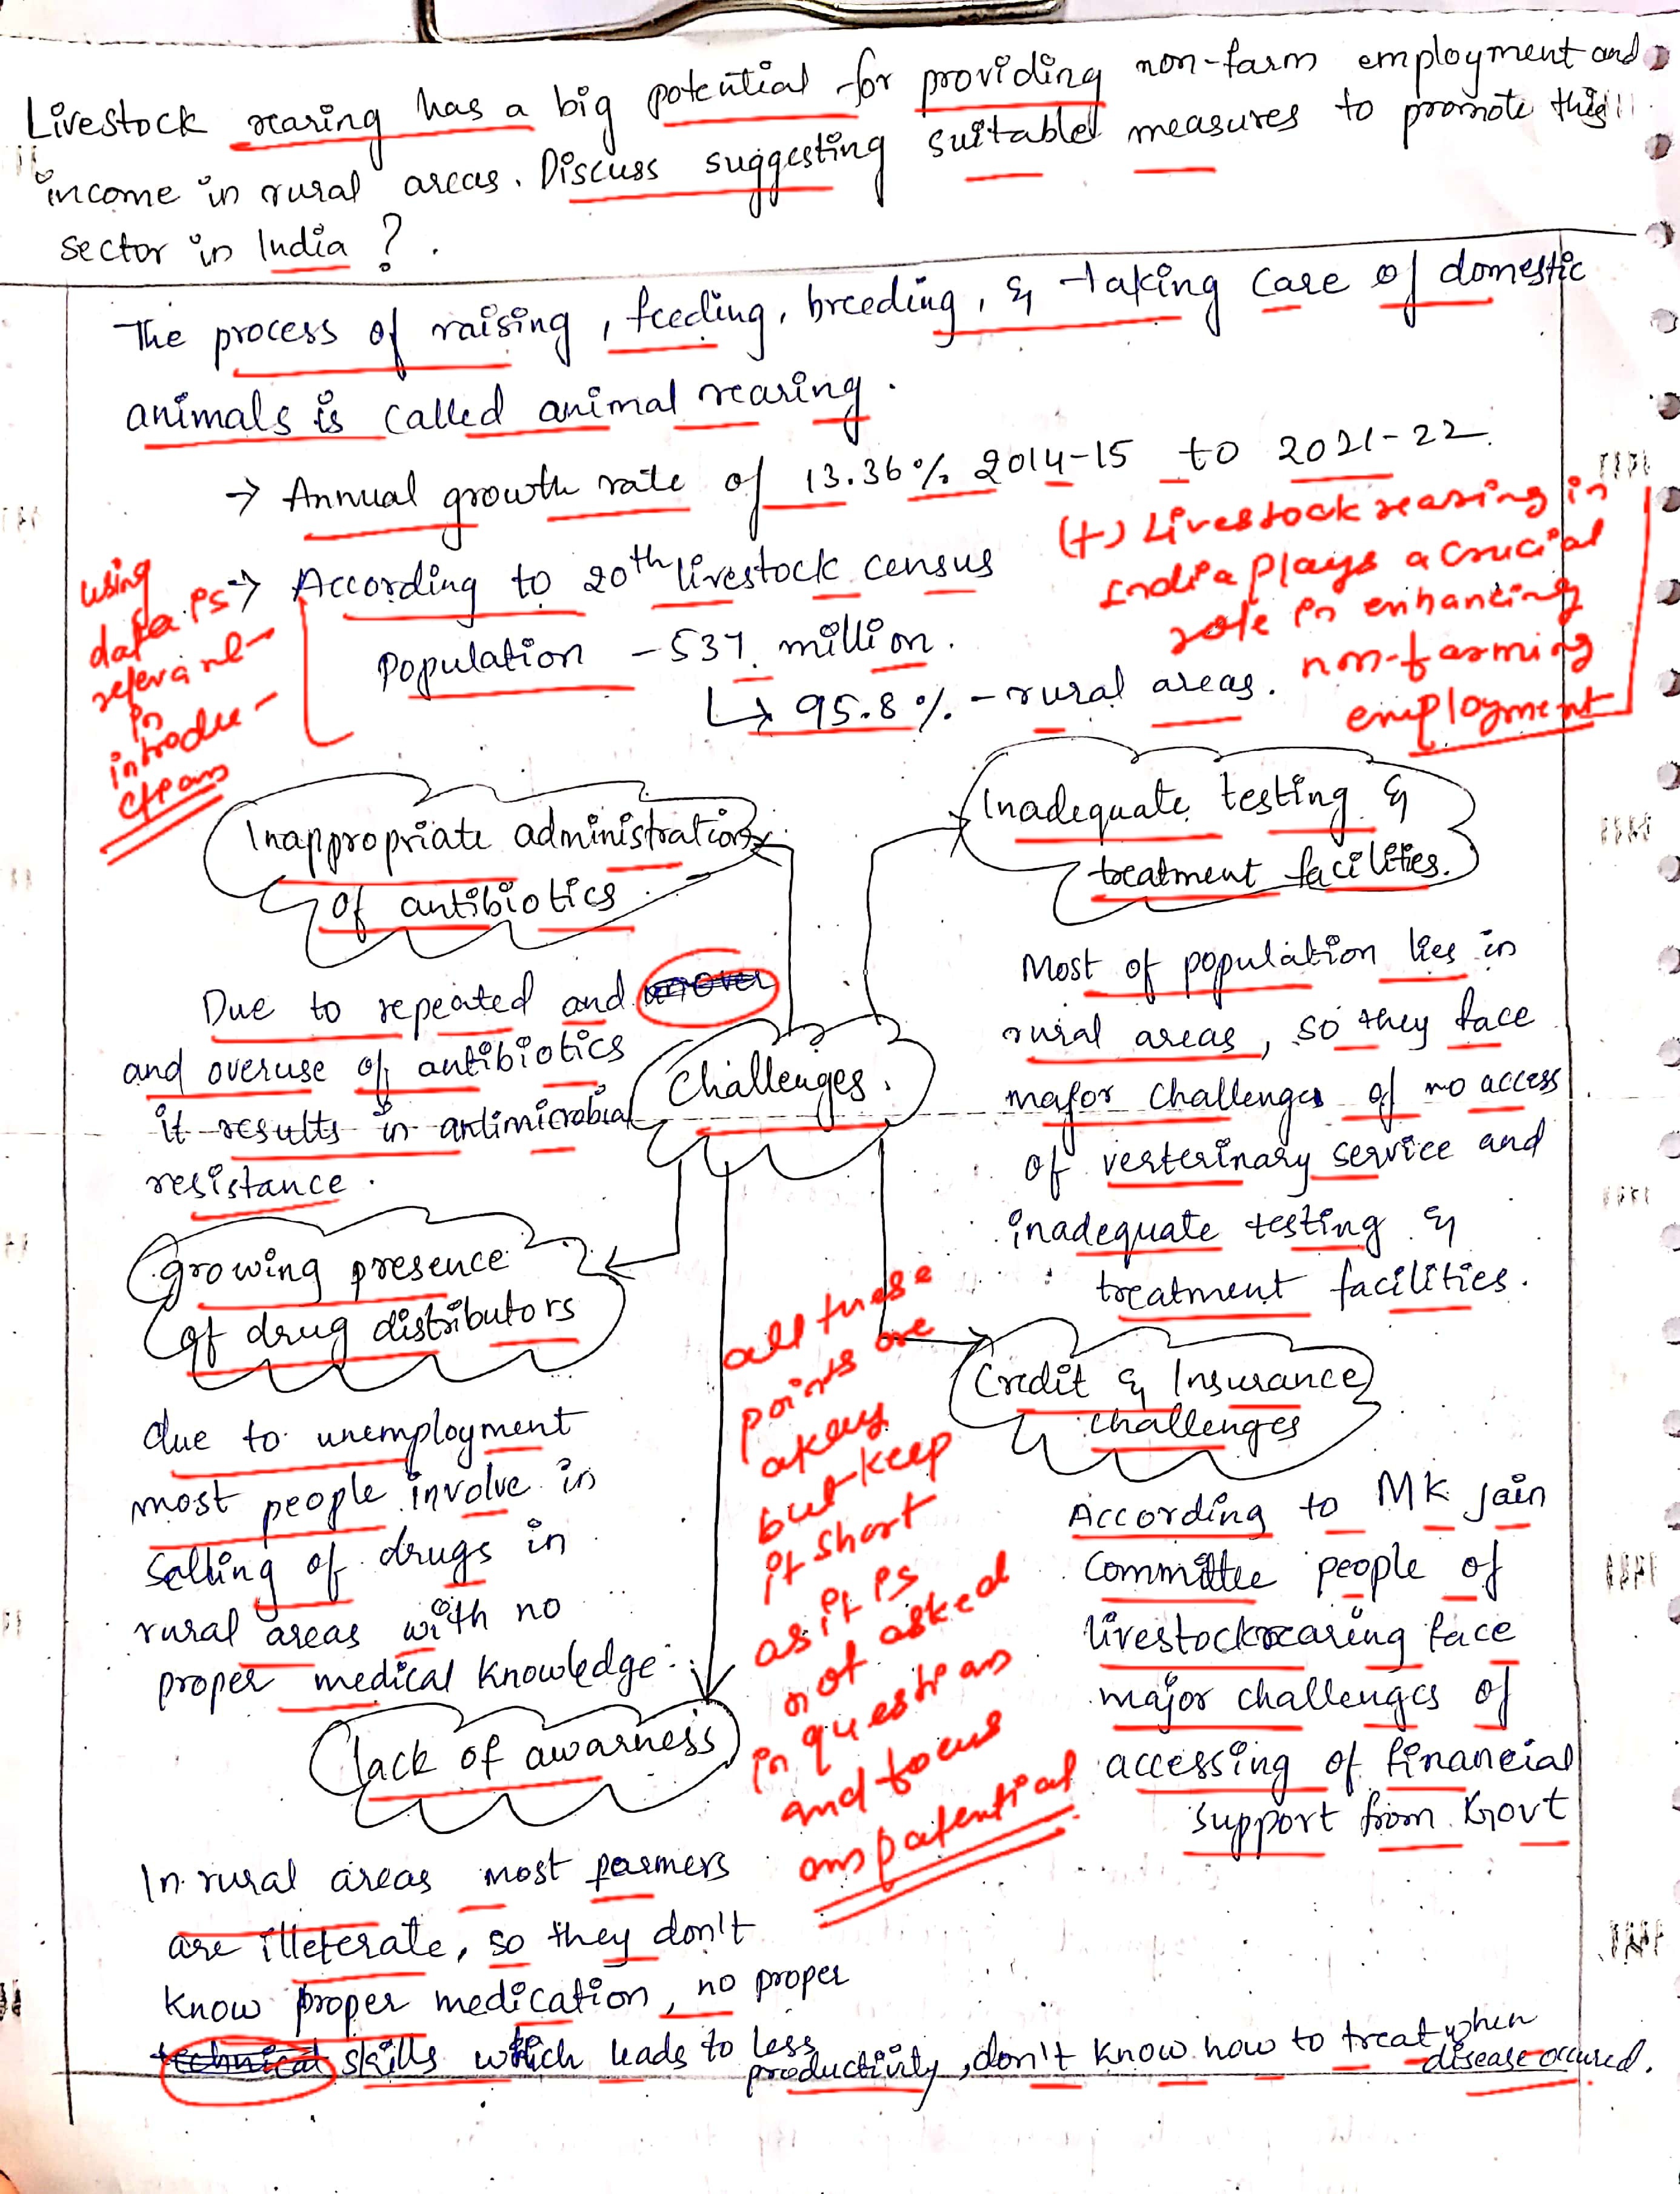 Livestock rearing has a big potential for providing non-farm employment and
income in rural areas. Discuss suggesting suitable measures to promote this
sector in India ?.
The process of raising, feeding, breeding, & taking care of domestic
animals is called animal rearing.
→ Annual growth rate of 13.36% 2014-15 to 2021-22.
→ According to 20th livestock census
Population - 537 million.
↳ 95.8% - rural areas.
using
data is
relevant
in
introdu-
ctions
(+) Livestock rearing in
India plays a crucial
role in enhancing
non-farming
employment
Inappropriate administration
of antibiotics
Due to repeated and
and overuse of antibiotics
it results in antimicrobial
resistance.
Inadequate testing &
treatment facilities.
Most of population lies in
rural areas, so they face
major challenges of no access
of verterinary service and
inadequate testing &
treatment facilities.
Challenges.
growing presence
of drug distributors
due to unemployment
most people involve in
selling of drugs in
rural areas with no
proper medical knowledge.
all these
points are
okay
but keep
it short
as it is
not asked
in questions
and focus
on potential
Credit & Insurance
challenges
According to MK Jain
Committee people of
livestock rearing face
major challenges of
accessing of financial
support from Govt
lack of awarness
In rural areas most farmers
are illeterate, so they don't
know proper medication, no proper
technical skills which leads to less
productivity, don't know how to treat when
disease occured.